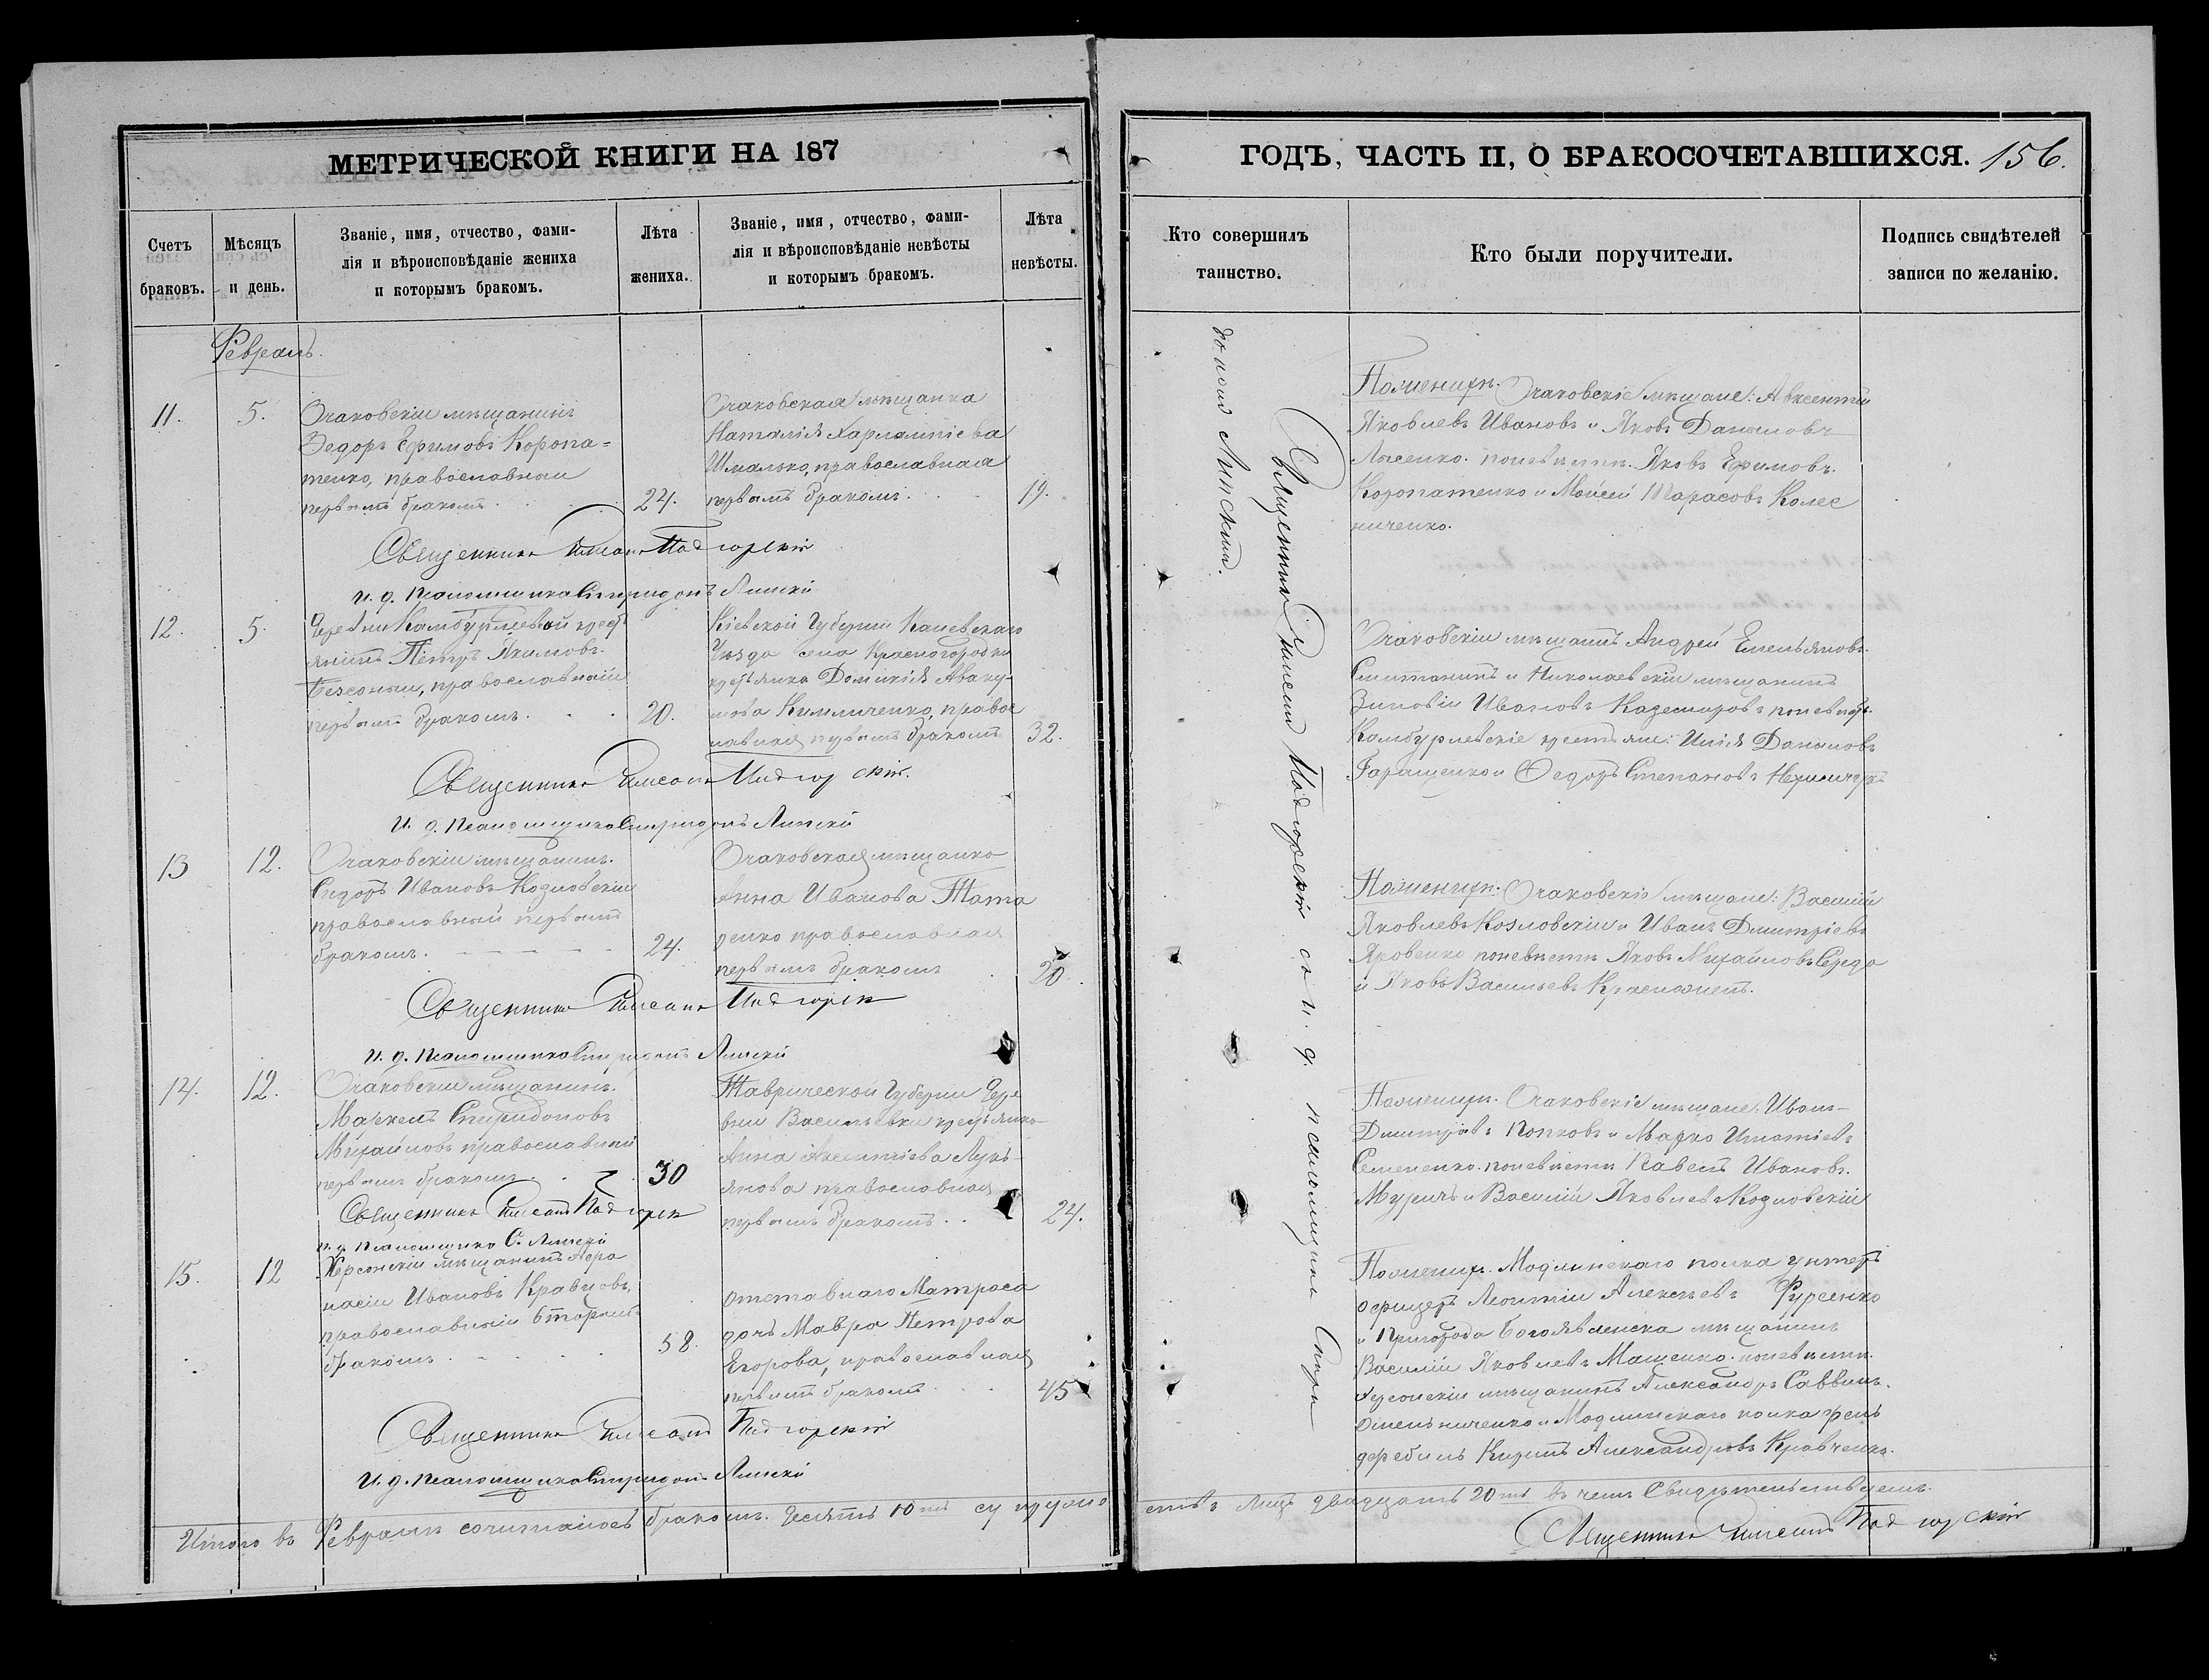 МЕТРИЧЕСКОЙ КНИГИ НА 187
Счетъ
браковъ.
Мѣсяцъ
и день.
Званіе, имя, отчество, фами-
лія и вѣроисповѣданіе жениха
и которымъ бракомъ.
Лѣта
жениха.
Званіе, имя, отчество, фами-
лія и вѣроисповѣданіе невѣсты
и которымъ бракомъ.
Лѣта
невѣсты.
Февраль.
11.
5.
Очаковскій мѣщанинъ
Ѳедоръ Ефимовъ Коропа-
тенко, православный
первымъ бракомъ
24.
Очаковская мѣщанка
Наталія Харлампіева
Шмалько, православная
первымъ бракомъ.
19.
Священникъ Подгорскій
И. д. псаломщика Спиридонъ Линскій
12.
5.
Деревни Камбурлеевой крест
янинъ Петръ Якимовъ
православный
первымъ бракомъ.
20.
Кіевской Губерніи Каневскаго
Уѣзда села Красногородки
крестьянка Домникія Аваку-
мова правос
лавная первымъ бракомъ
32.
Священникъ Подгорскій.
И. д. псаломщика Спиридонъ Линскій
13
12.
Очаковскій мѣщанинъ.
Сидоръ Ивановъ Козловскій
православный первымъ
бракомъ.
24.
Очаковская мѣщанка
Анна Иванова Тата
ренко православная
первымъ бракомъ
20.
Священникъ Подгорскій
И. д. псаломщика Спиридонъ Линскій
14.
12.
Очаковскій мѣщанинъ.
Маркелъ Спиридоновъ
Михайловъ православный
первымъ бракомъ
30
Таврической Губерніи Дере
вни Васильевки крестьянка
Анна Авксентіева Лукь-
янова православная
первымъ бракомъ
24.
Священникъ Подгорскій
и. д. псаломщика С. Линскій
15.
12
Херсонскій мѣщанинъ Афа
насій Ивановъ Кравцовъ,
православный вторымъ
бракомъ.
58.
Отставнаго Матроса
дочь Мавра Петрова
Егорова, православная
первымъ бракомъ
45
Священникъ Подгорскій
И. д. псаломщика Спиридонъ Линскій
Итого въ Февралѣ сочиталось бракомъ. Десять 10ть супруже
ГОДЪ, ЧАСТЬ II, О БРАКОСОЧЕТАВШИХСЯ. 156.
Кто совершилъ
таинство.
Кто были поручители.
Подпись свидѣтелей
записи по желанію.
Священникъ Подгорскій съ и. д. псаломщика Спири
дономъ Линскимъ.
По женихѣ. Очаковскіе мѣщане: Авксентій
Яковлевъ Ивановъ и Яковъ Даниловъ
Лысенко. по невѣстѣ. Яковъ Ефимовъ.
Коропатенко и Мойсей Тарасовъ Колес
ниченко.
Очаковскій мѣщанинъ Андрей Емельяновъ.
и Николаевскій мѣщанинъ
Зиновій Ивановъ Каземировъ по невѣстѣ.
Камбурлевскіе крестьяне: Илія Даниловъ
Гаращенко и Ѳедоръ Степановъ
По женихѣ. Очаковскіе мѣщане: Василій
Яковлевъ Козловскій и Иванъ Дмитріевъ
Яровенко по невѣстѣ Яковъ Михайловъ Середа
и Яковъ Васильевъ
По женихѣ. Очаковскіе мѣщане: Иванъ
Дмитріевъ Попковъ и Марко Игнатіевъ
Семененко. по невѣстѣ Павелъ Ивановъ.
и Василій Яковлевъ Козловскій
По женихѣ. Модлинскаго полка унтеръ
офицеръ Леонтій Алексѣевъ Фурсенко
и Пригорода Богоявленска мѣщанинъ
Василій Яковлевъ Мащенко. по невѣстѣ.
Херсонскій мѣщанинъ Александръ Саввинъ.
Омельниченко и Модлинскаго полка фель
дфебель Кирилъ Александровъ Кравченко.
ствъ лицъ двадцать 20ть въ чемъ Свидѣтельствуемъ.
Священникъ Подгорскій